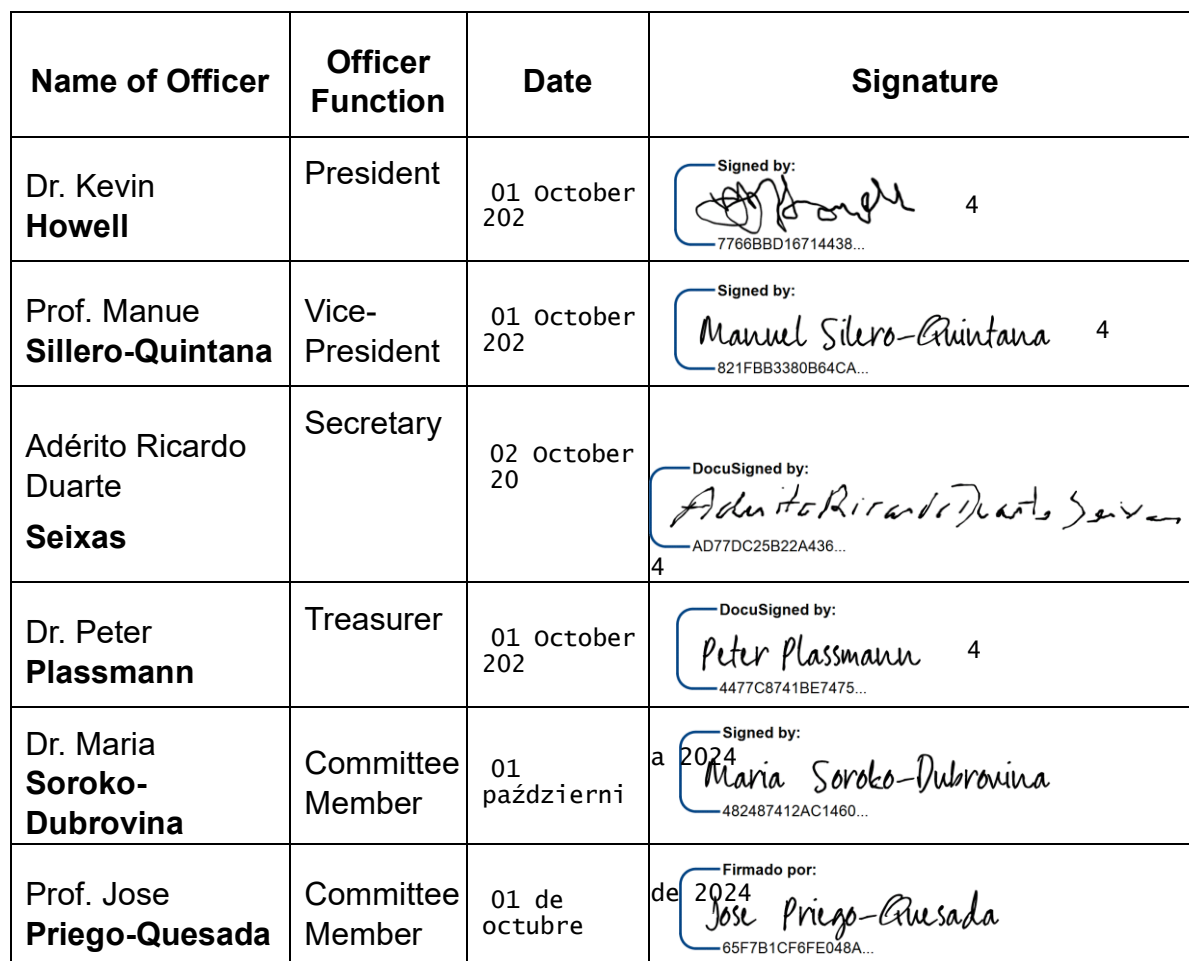 Name of Officer
Officer
Function
Date
Signature
Dr. Kevin
Howell
President
01 October
202
Signed by:
4
7766BBD16714438...
Prof. Manue
Sillero-Quintana
Vice-
President
01 October
202
Signed by:
Manuel Silero-Quintana
4
821FBB3380B64CA...
Adérito Ricardo
Duarte
Seixas
Secretary
02 October
20
DocuSigned by:
Aderito Ricardo Duarte Seixas
AD77DC25B22A436...
4
Dr. Peter
Plassmann
Treasurer
01 October
202
DocuSigned by:
Peter Plassmann
4
4477C8741BE7475...
Dr. Maria
Soroko-
Dubrovina
Committee
Member
01
październi
a 2024
Signed by:
Maria Soroko-Dubrovina
482487412AC1460...
Prof. Jose
Priego-Quesada
Committee
Member
01 de
octubre
de 2024
Firmado por:
Jose Priego-Quesada
65F7B1CF6FE048A...